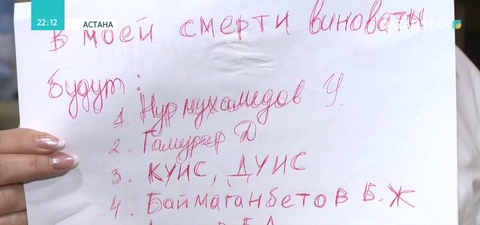 22:12 АСТАНА
В моей смерти виноваты
будут:
1. Нурмухамедов У.
2. Д
3. КУИС, ДУИС
4. Баймаганбетов Б.Ж